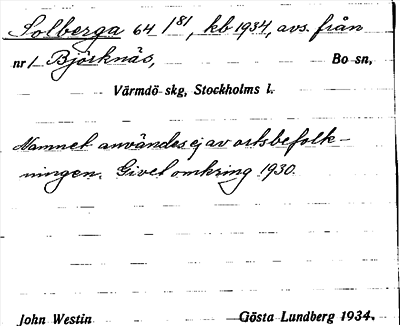 Solberga 64 1/81, kb 1934, avs. från
nr 1 Björknäs, Bo sn,
Värmdö skg, Stockholms l.
Namnet användes ej av ortsbefolk-
ningen. Givet omkring 1930.
John Westin Gösta Lundberg 1934.